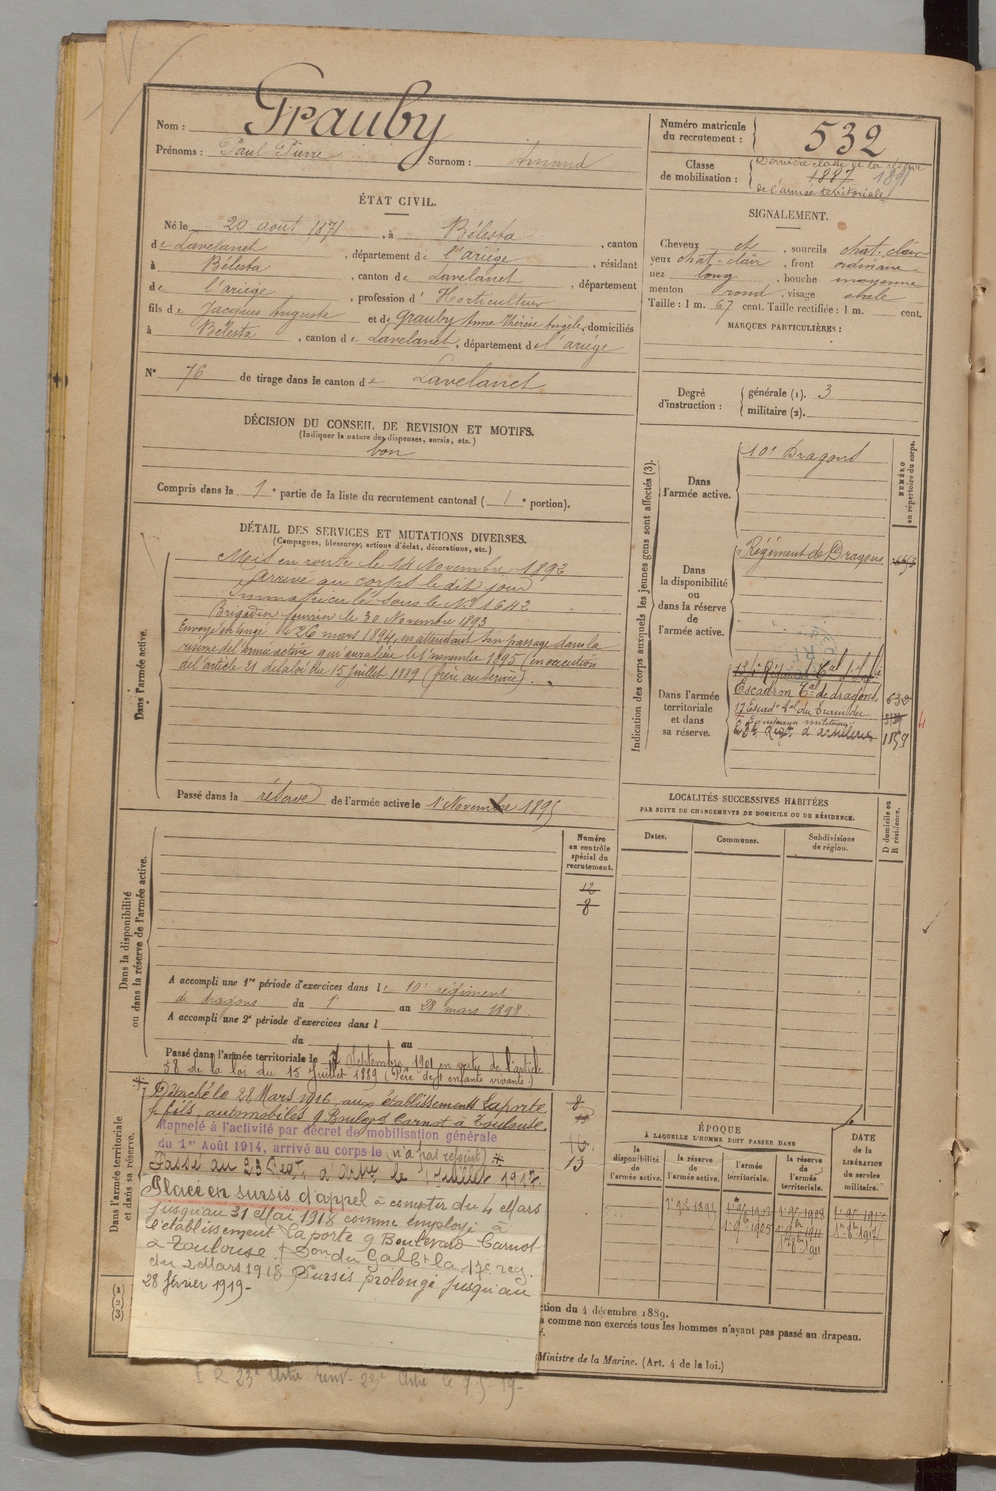 Nom : Grauby
Prénoms : Paul Pierre Surnom : Amand
Numéro matricule du recrutement : 532
Classe de mobilisation : Dernière classe de la réserve
1887 1891
de l'armée territoriale
ÉTAT CIVIL.
Né le 20 août 1871, à Bélesta, canton
de Lavelanet, département de l'ariège, résidant
à Bélesta, canton de Lavelanet, département
de l'ariège, profession d' Horticulteur
fils de Jacques Auguste et de Grauby Anne Thérèse Angèle, domiciliés
à Bélesta, canton de Lavelanet, département de l'ariège
N° 76 de tirage dans le canton de Lavelanet
SIGNALEMENT.
Cheveux et, sourcils chat-clair
yeux chat-clair, front ordinaire
nez long, bouche moyenne
menton rond, visage ovale
Taille : 1 m. 67 cent. Taille rectifiée : 1 m. cent.
MARQUES PARTICULIÈRES :
Degré d'instruction : générale (1). 3
militaire (2).
DÉCISION DU CONSEIL DE REVISION ET MOTIFS.
(Indiquer la nature des dispenses, sursis, etc.)
bon
Compris dans la 1e partie de la liste du recrutement cantonal ( 1e portion).
DÉTAIL DES SERVICES ET MUTATIONS DIVERSES.
(Campagnes, blessures, actions d'éclat, décorations, etc.)
Dans l'armée active.
Mis en route le 14 Novembre 1892
arrivé au corps le dit jour
Immatriculé sous le N° 1642
Brigadier fourrier le 30 Novembre 1893
Envoyé en congé le 26 mars 1894, en attendant son passage dans la
réserve de l'armée active qui aura lieu le 1er novembre 1895 (en exécution
de l'article 21 de la loi du 15 juillet 1889 (frère au service).
Passé dans la réserve de l'armée active le 1er Novembre 1895
Indication des corps auxquels les jeunes gens sont affectés (3).
NUMÉRO au répertoire du corps.
Dans l'armée active. 10e Dragons
Dans la disponibilité ou dans la réserve de l'armée active. Régiment de Dragons
Dans l'armée territoriale et dans sa réserve.
Escadron Tal de dragons 632
17e Escadron Tal du Train des
Equipages militaires
1859
LOCALITÉS SUCCESSIVES HABITÉES
PAR SUITE DE CHANGEMENTS DE DOMICILE OU DE RÉSIDENCE.
D domicile ou R résidence.
Dates. Communes. Subdivisions de région.
Dans la disponibilité ou dans la réserve de l'armée active.
Numéro au contrôle spécial du recrutement.
12
8
A accompli une 1re période d'exercices dans le 10e régiment
de dragons du 1er au 28 mars 1898.
A accompli une 2e période d'exercices dans l
du au
Passé dans l'armée territoriale le 7 Septembre 1901 en vertu de l'article
58 de la loi du 15 juillet 1889 (Père de 4 enfants vivants.)
Dans l'armée territoriale et dans sa réserve.
Détaché le 28 Mars 1916 aux établissements Laporte
& fils, automobiles 9 Boulevard Carnot à Toulouse
Rappelé à l'activité par décret de mobilisation générale
du 1er Août 1914, arrivé au corps le (n'a pas rejoint)
Passé au 23 Régt d'Artie le 1er juillet 1917
8
13
Placé en sursis d'appel à compter du 4 Mars
jusqu'au 31 Mai 1918 comme employé à
l'établissement Laporte 9 Boulevard Carnot
à Toulouse. Don du Gal Ct la 17e reg.
du 2 Mars 1918 Sursis prolongé jusqu'au
28 février 1919-
ÉPOQUE
A LAQUELLE L'HOMME DOIT PASSER DANS
la disponibilité de l'armée active. la réserve de l'armée active. l'armée territoriale. la réserve de l'armée territoriale.
DATE DE LA LIBÉRATION du service militaire.
(1)
(2)
(3)
ction du 4 décembre 1889.
a comme non exercés tous les hommes n'ayant pas passé au drapeau.
Ministre de la Marine. (Art. 4 de la loi.)